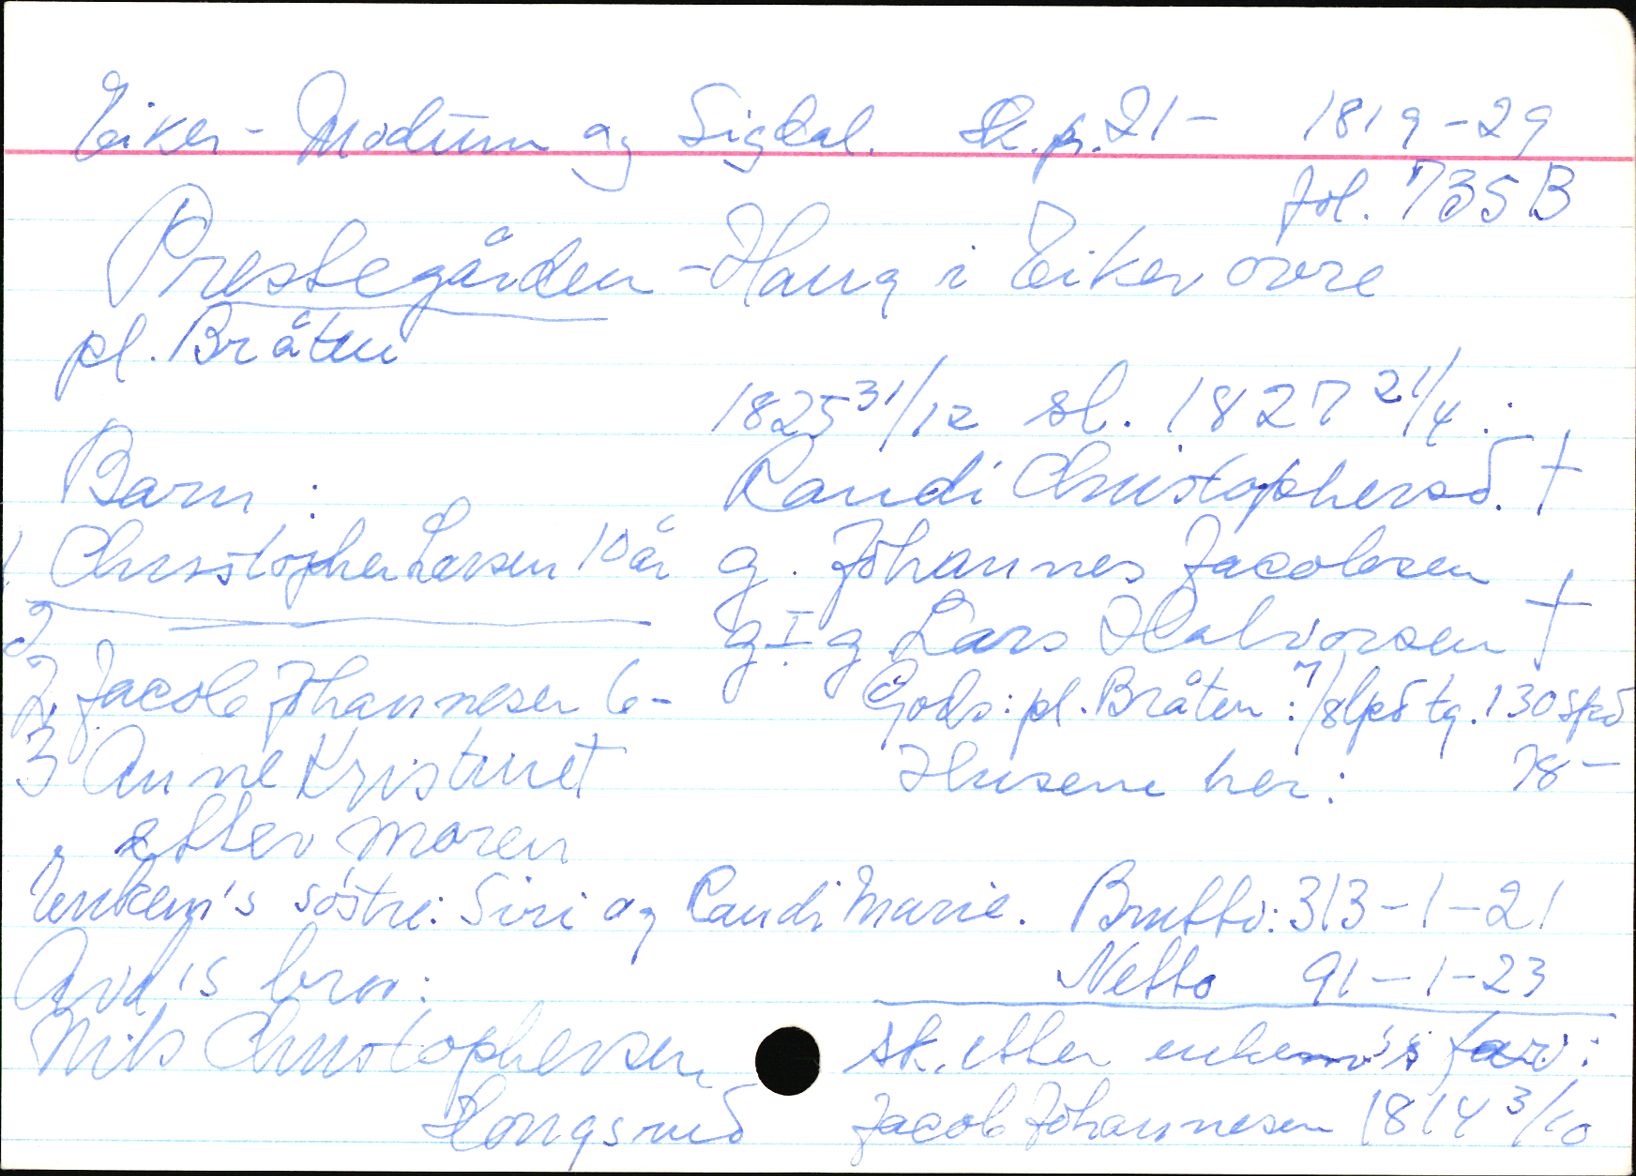 Eiker - Modum og Sigdal. Sk.p. 21 - 1819-29
fol. 735 B
Prestegården - Haug i Eiker øvre
pl. Bråten
1825 31/12 sl. 1827 21/4 :
Barn : Randi Christophersd. †
1. Christopher Larsen 10 år g. Johannes Jacobsen
2 g I g. Lars Halvorsen †
2. Jacob Johannesen 6 - Gods: pl. Bråten : 7/8 lpd tg. 130 spd
3 Anne Kristine † Husene her : 78 -
etter moren
Enkem's søstre: Siri og Randi Marie. Brutto: 313-1-21
Avd's bror: Netto 91-1-23
Nils Christophersen Sk. etter enkem's far :
Hongsrud Jacob Johannesen 1814 3/10